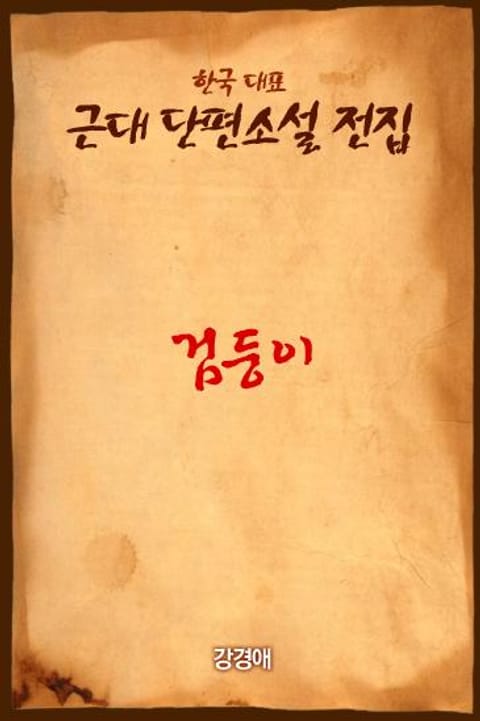 한국 대표
근대 단편소설 전집
검둥이
강경애